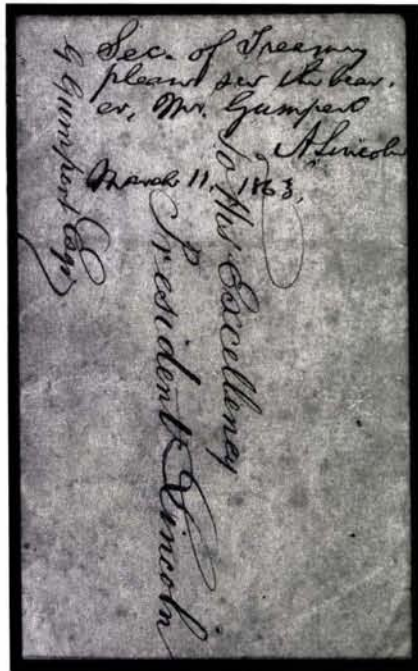 Sec. of Treasury
please see the bear-
er, Mr. Gumpert
A. Lincoln
March 11, 1863,
To His Excellency
President Lincoln
G Gumpert Esqr